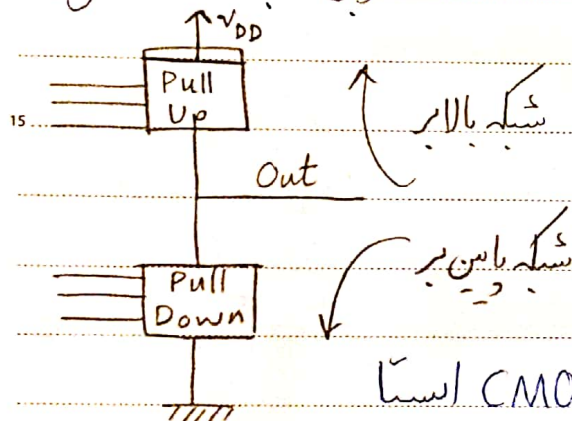 VDD
Pull
Up
شبکه بالابر
15
Out
شبکه پایین بر
Pull
Down
CMO استا